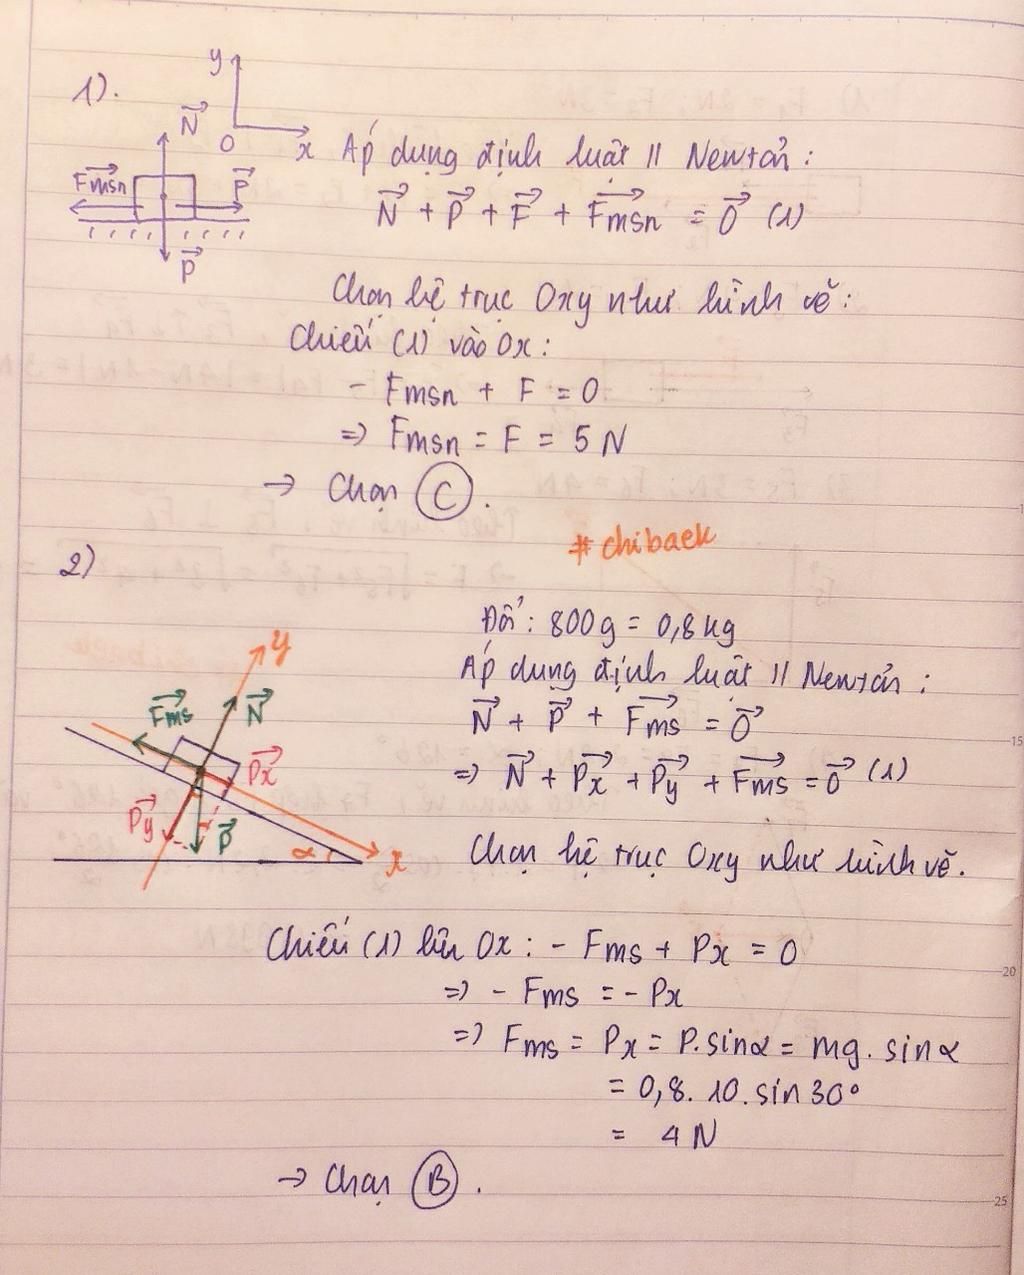 1).
y
N
O
x
Áp dụng định luật II Newtơn:
Fmsn
F
N + P + F + Fmsn = 0 (1)
P
Chọn hệ trục Oxy như hình vẽ:
Chiếu (1) vào Ox:
- Fmsn + F = 0
=> Fmsn = F = 5 N
-> Chọn C.
# chibaek
2)
Đổi: 800g = 0,8kg
Áp dụng định luật II Newtơn:
N + P + Fms = 0
=> N + Px + Py + Fms = 0 (1)
y
Fms
N
Px
Py
α
P
α
x
Chọn hệ trục Oxy như hình vẽ.
Chiếu (1) lên Ox: - Fms + Px = 0
=> - Fms = - Px
=> Fms = Px = P.sinα = mg.sinα
= 0,8. 10. sin 30°
= 4 N
-> Chọn B.
15
20
25